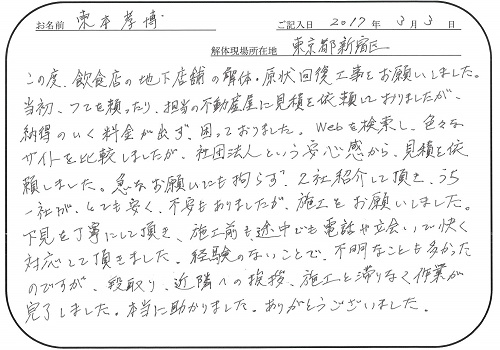 お名前 東本孝博 ご記入日 2017年 3月 3日
解体現場所在地 東京都新宿区
この度、飲食店の地下店舗の解体・原状回復工事をお願いしました。
当初、つてを頼ったり、担当の不動産屋に見積を依頼しておりましたが、
納得のいく料金が出ず、困っておりました。Webを検索し、色々な
サイトを比較しましたが、社団法人という安心感から、見積を依
頼しました。急なお願いにも拘らず、2社紹介して頂き、うち
一社が、とても安く、不安もありましたが、施工をお願いしました。
下見を丁寧にして頂き、施工前も途中でも電話や立会いで快く
対応して頂きました。経験のないことで、不明なことも多かった
のですが、段取り、近隣への挨拶、施工と滞りなく作業が
完了しました。本当に助かりました。ありがとうございました。